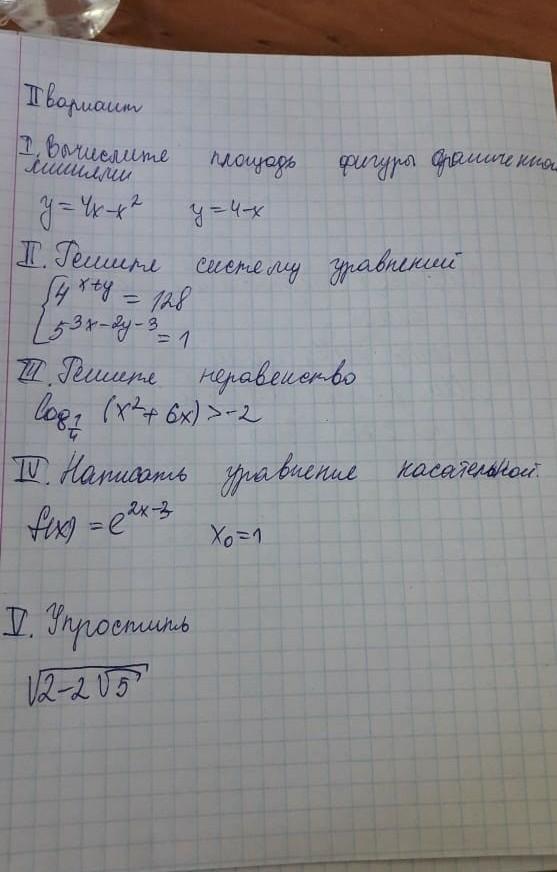 II вариант
I. Вычислите площадь фигуры ограниченной
линиями
y=4x-x² y=4-x
II. Решите систему уравнений
{4^{x+y} = 128
5^{3x-2y-3} = 1
III. Решите неравенство
log_{1/4} (x²+6x) > -2
IV. Написать уравнение касательной.
f(x) = e^{2x-3} x₀=1
V. Упростить
√(2-2√5)